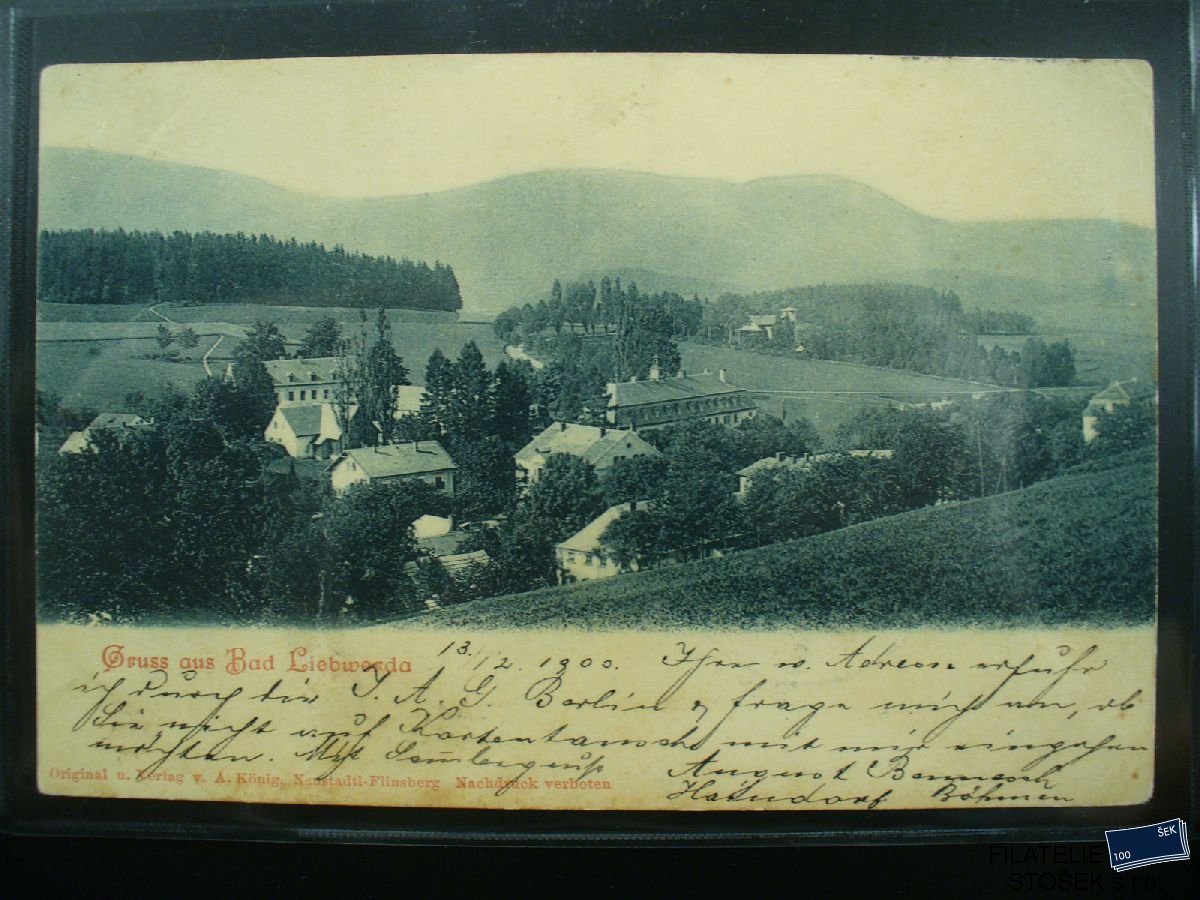 Gruss aus Bad Liebwerda
13./12. 1900. Ihre w. Adresse erfuhr
ich durch die I. A. G. Berlin & frage mich an, ob
Sie nicht auf Kartentausch mit mir eingehen
möchten. Mit Sammlergruß
August
Haindorf Böhmen
Original u. Verlag v. A. König, Neustadtl-Flinsberg Nachdruck verboten
FILATELIE
STOŠEK s.r.o.
100 ŠEK